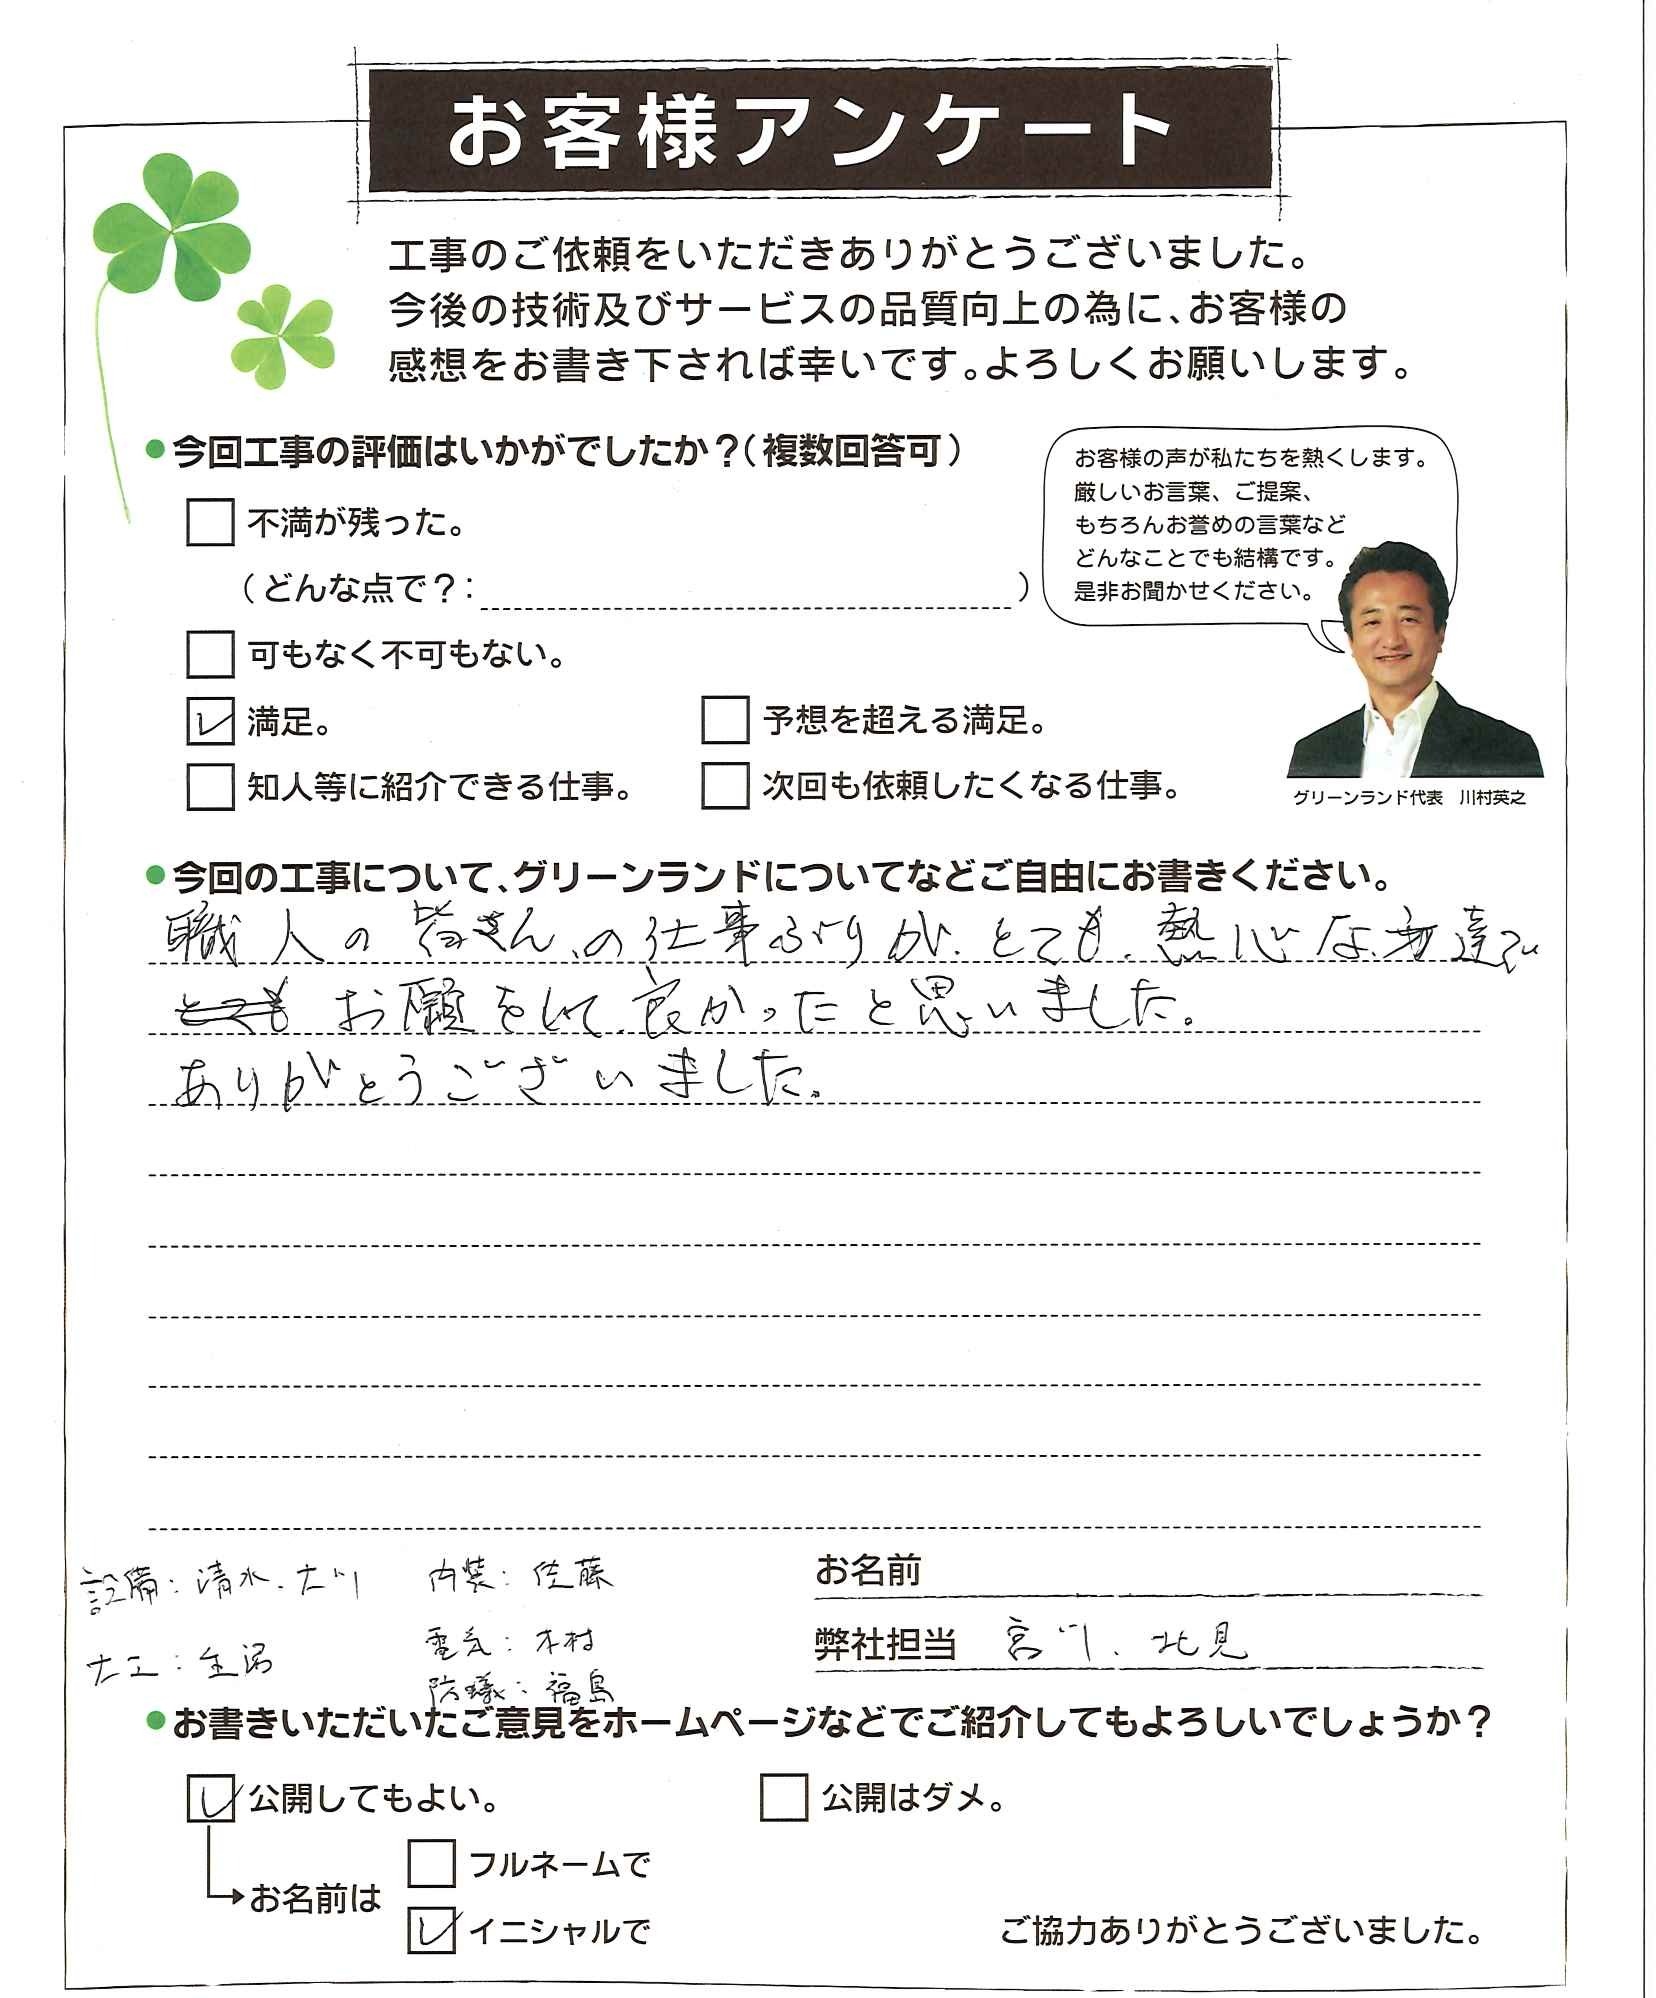 お客様アンケート
工事のご依頼をいただきありがとうございました。
今後の技術及びサービスの品質向上の為に、お客様の
感想をお書き下されば幸いです。よろしくお願いします。
●今回工事の評価はいかがでしたか？（複数回答可）
お客様の声が私たちを熱くします。
厳しいお言葉、ご提案、
もちろんお誉めの言葉など
どんなことでも結構です。
是非お聞かせください。
不満が残った。
（どんな点で？：　）
可もなく不可もない。
満足。
予想を超える満足。
知人等に紹介できる仕事。
次回も依頼したくなる仕事。
グリーンランド代表　川村英之
●今回の工事について、グリーンランドについてなどご自由にお書きください。
職人の皆さんの仕事ぶりが、とても熱心な方達で
とても お願をして良かったと思いました。
ありがとうございました。
設備：清水．大川　内装：佐藤
大工：　電気：木村
防蟻：福島
お名前
弊社担当　宮川．北見
●お書きいただいたご意見をホームページなどでご紹介してもよろしいでしょうか？
公開してもよい。
公開はダメ。
お名前は
フルネームで
イニシャルで
ご協力ありがとうございました。